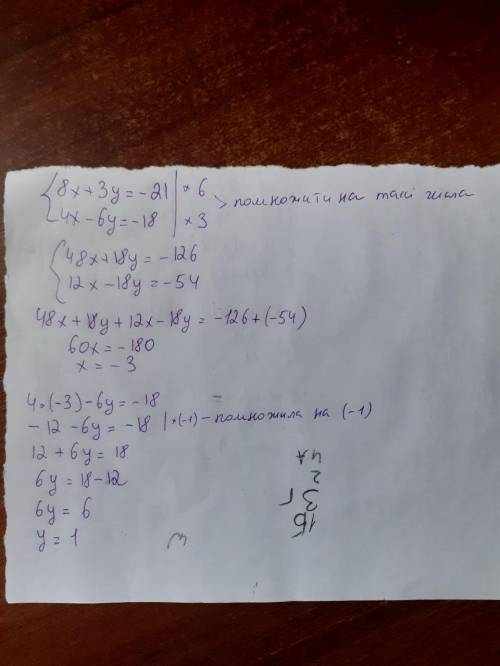 8x+3y=-21 | × 6
4x-6y=-18 | × 3 > помножити на такі числа
48x+18y=-126
12x-18y=-54
48x+18y+12x-18y=-126+(-54)
60x=-180
x=-3
4·(-3)-6y=-18
-12-6y=-18 | ·(-1) - помножила на (-1)
12+6y=18
6y=18-12
6y=6
y=1
1Б
3Г
2
4А